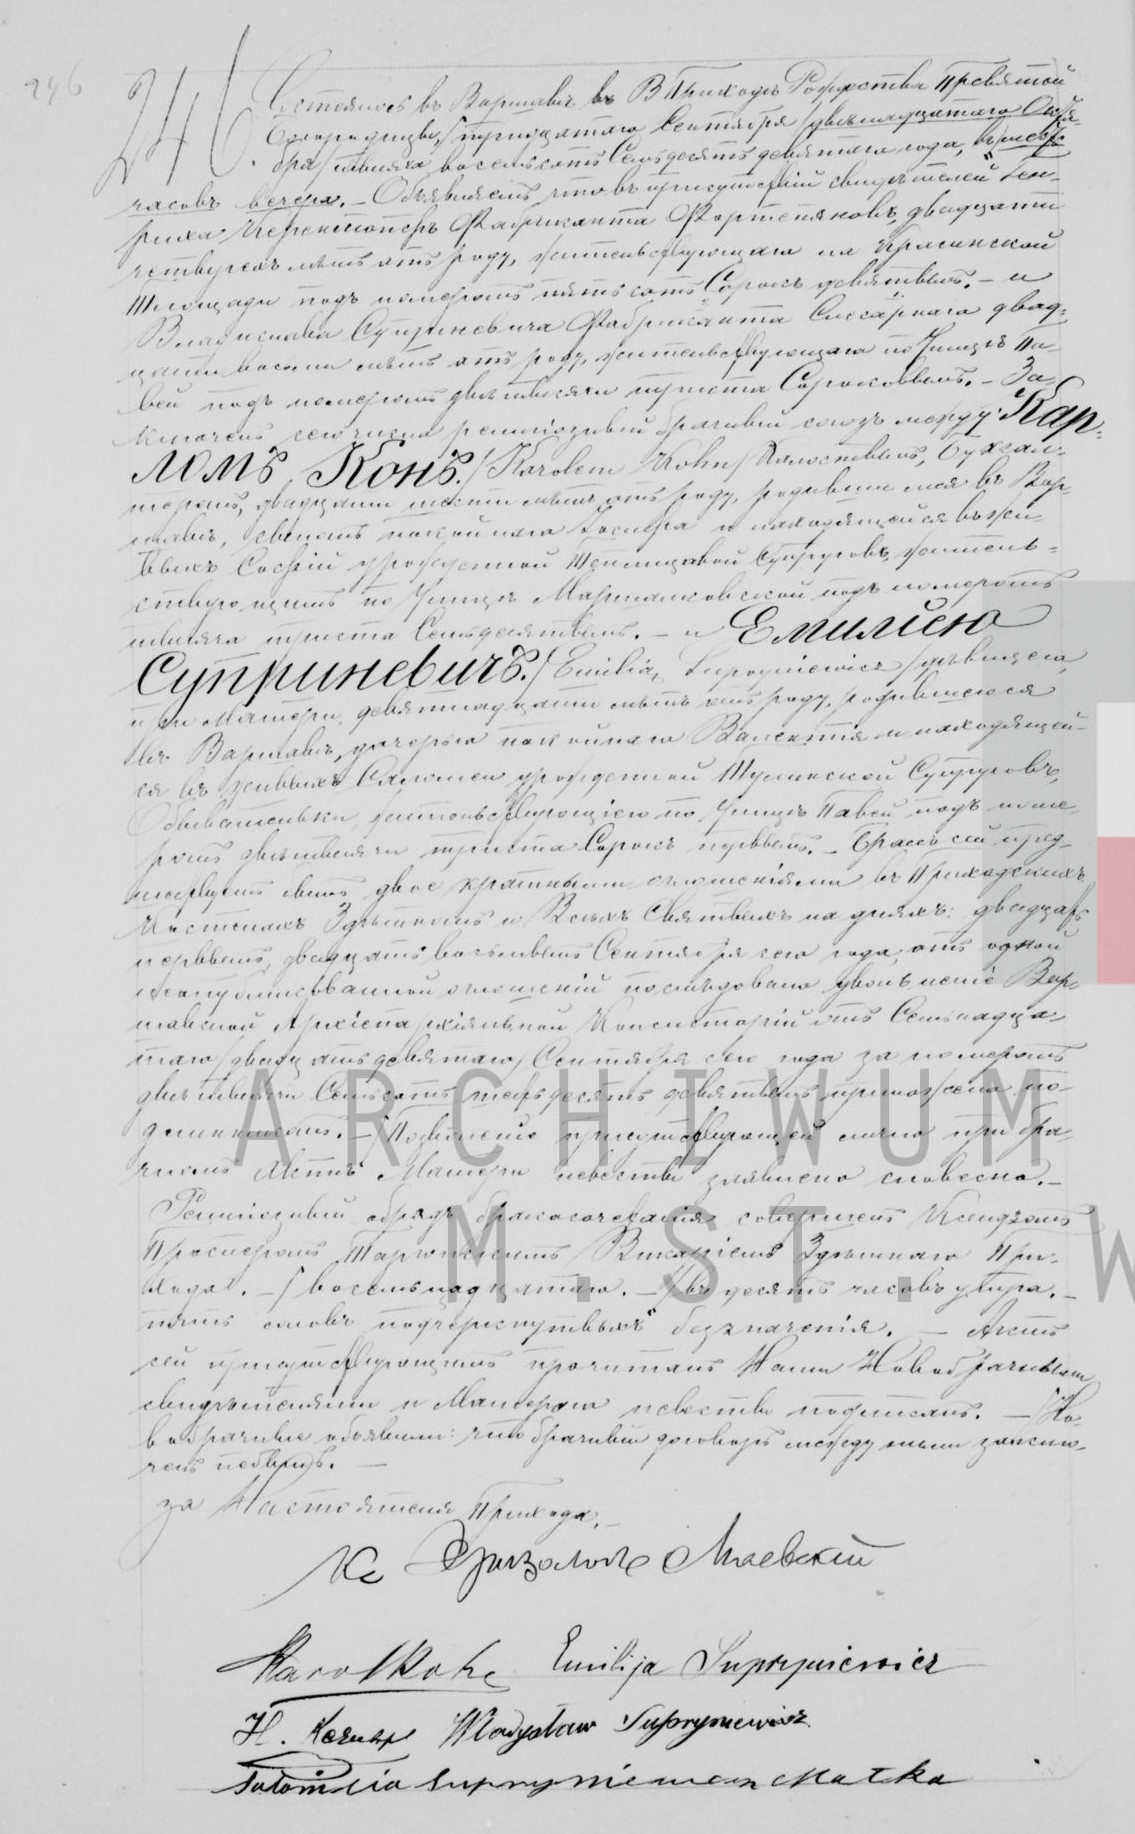 246
246.
Состоялось въ Варшавѣ въ Приходѣ Рождества Пресвятой
Богородицы, тридцатаго Сентября /двѣнадцатаго Октя-
бря/ тысяча восемьсотъ Семьдесятъ девятаго года, въ шесть
часовъ вечера. – Объявляемъ что въ присутствіи свидѣтелей Ген-
риха Фабриканта Фортепяновъ, двадцати
четырехъ лѣтъ отъ роду, жительствующаго на Красинской
Площади подъ номеромъ пятьсотъ Сорокъ девятымъ. – и
Владислава Супрыневича Фабриканта Слесарнаго двад-
цати восьми лѣтъ отъ роду, жительствующаго по Улицѣ Па-
вей подъ номеромъ двѣ тысячи триста Сороковымъ. – За-
ключенъ сего числа религіозный брачный союзъ между Кар-
ломъ Конъ. /Karolem Kohn/ Холостымъ, Бухгал-
теромъ, двадцати лѣтъ отъ роду, родившимся въ Вар-
шавѣ, сыномъ покойнаго и находящейся въ жи-
выхъ Софіи урожденной Супруговъ, житель-
ствующимъ по Улицѣ Маршалковской подъ номеромъ
тысяча триста Семьдесятымъ. – и Емиліею
Суприневичъ. /Emilią Supryniewicz/ дѣвицею,
при Матери, девятнадцати лѣтъ отъ роду, родившеюся
въ Варшавѣ, дочерью покойнаго и находящей-
ся въ живыхъ Саломеи урожденной Супруговъ,
жительствующею по Улицѣ Павей подъ номе-
ромъ двѣ тысячи триста Сорокъ первымъ. – Браку сему пред-
шествуетъ двое кратными оглашеніями въ Приходскихъ
Костелахъ Здѣшномъ и Всѣхъ Святыхъ на дняхъ: двадцать
первымъ, двадцать восьмымъ Сентября сего года, отъ одной
неопубликованной оглашеній послѣдовало увольненіе Вар-
шавской Архіепархіяльной Консисторіи отъ Семьнадца-
таго /двадцать девятаго/ Сентября сего года за номеромъ
двѣ тысячи Семьсотъ девятымъ приложено по-
длинникомъ. – Позволеніе присутствующей лично при бра-
чномъ Актѣ Матери невѣсты заявлено словесно. –
Религіозный обрядъ бракосочетанія совершенъ Ксендзомъ
Просперомъ Викаріемъ Здѣшнаго При-
хода. – /восемьнадцатаго. – /въ десять часовъ утра. –
пять словъ подчеркнутыхъ безъ значенія. – Актъ
сей присутствующимъ прочитанъ Нами Новобрачными
свидѣтелями и Матерью невѣсты подписанъ. – /Но-
вобрачные объявили: что брачный договоръ между ними заклю-
ченъ небылъ. –
за Настоятеля Прихода. –
Кс Маевскій
Karol Kohn Emilija Supryniewicz
H. Władysław Supryniewicz
Salomeia Supryniewicz Matka
ARCHIWUM
M.ST. W